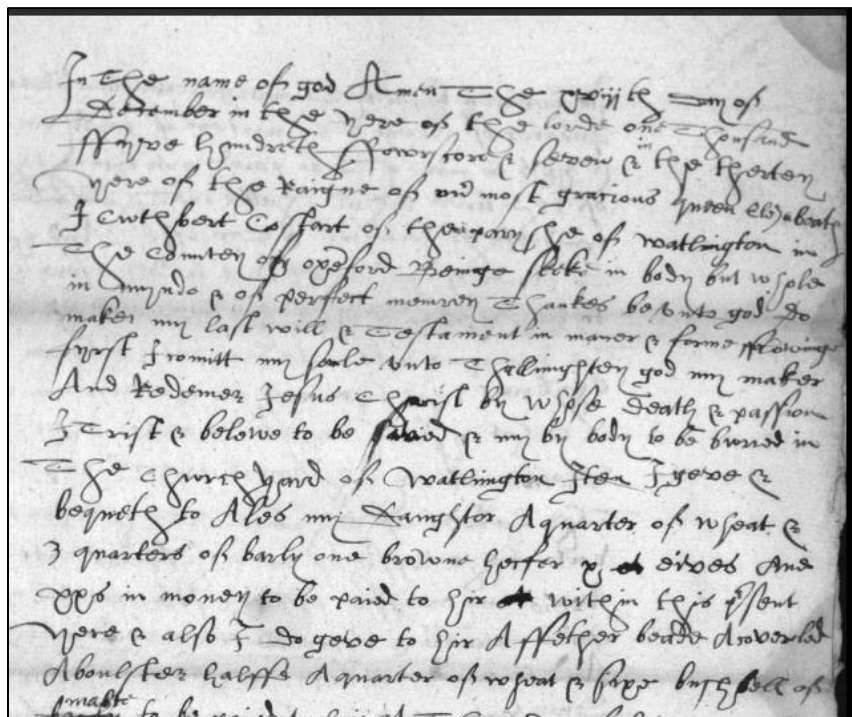 In The name of god Amen The xviijth Day of
December in the yere of the lorde one Thousand
ffyve hundreth ffowrscore & seven & in the therten
yere of the Raigne of our most gracious queen elyzabeath
I Cuthbert Costart of the paryshe of watlington in
The Countey of oxeford Beinge sicke in body but whole
in mynde & of perfect memrey Thankes be unto god do
make my last will & Testament in maner & forme fflowinge
fyrst I comitt my sole unto Thallmighttey god my maker
And Redemer Jesus Christ by whose death & passion
I Trist & beleve to be saved & my by body to be burred in
The Church yard of watlington Item I geve &
bequeth to Ales my Daughter A quarter of wheat &
3 quarters of barly one browne hecfer x ewes And
xxs in money to be paied to hir within this psent
yere & also I do geve to hir A ffether beade A coverled
A boulster halffe A quarter of wheat & syxe bushell of
malte to be paied